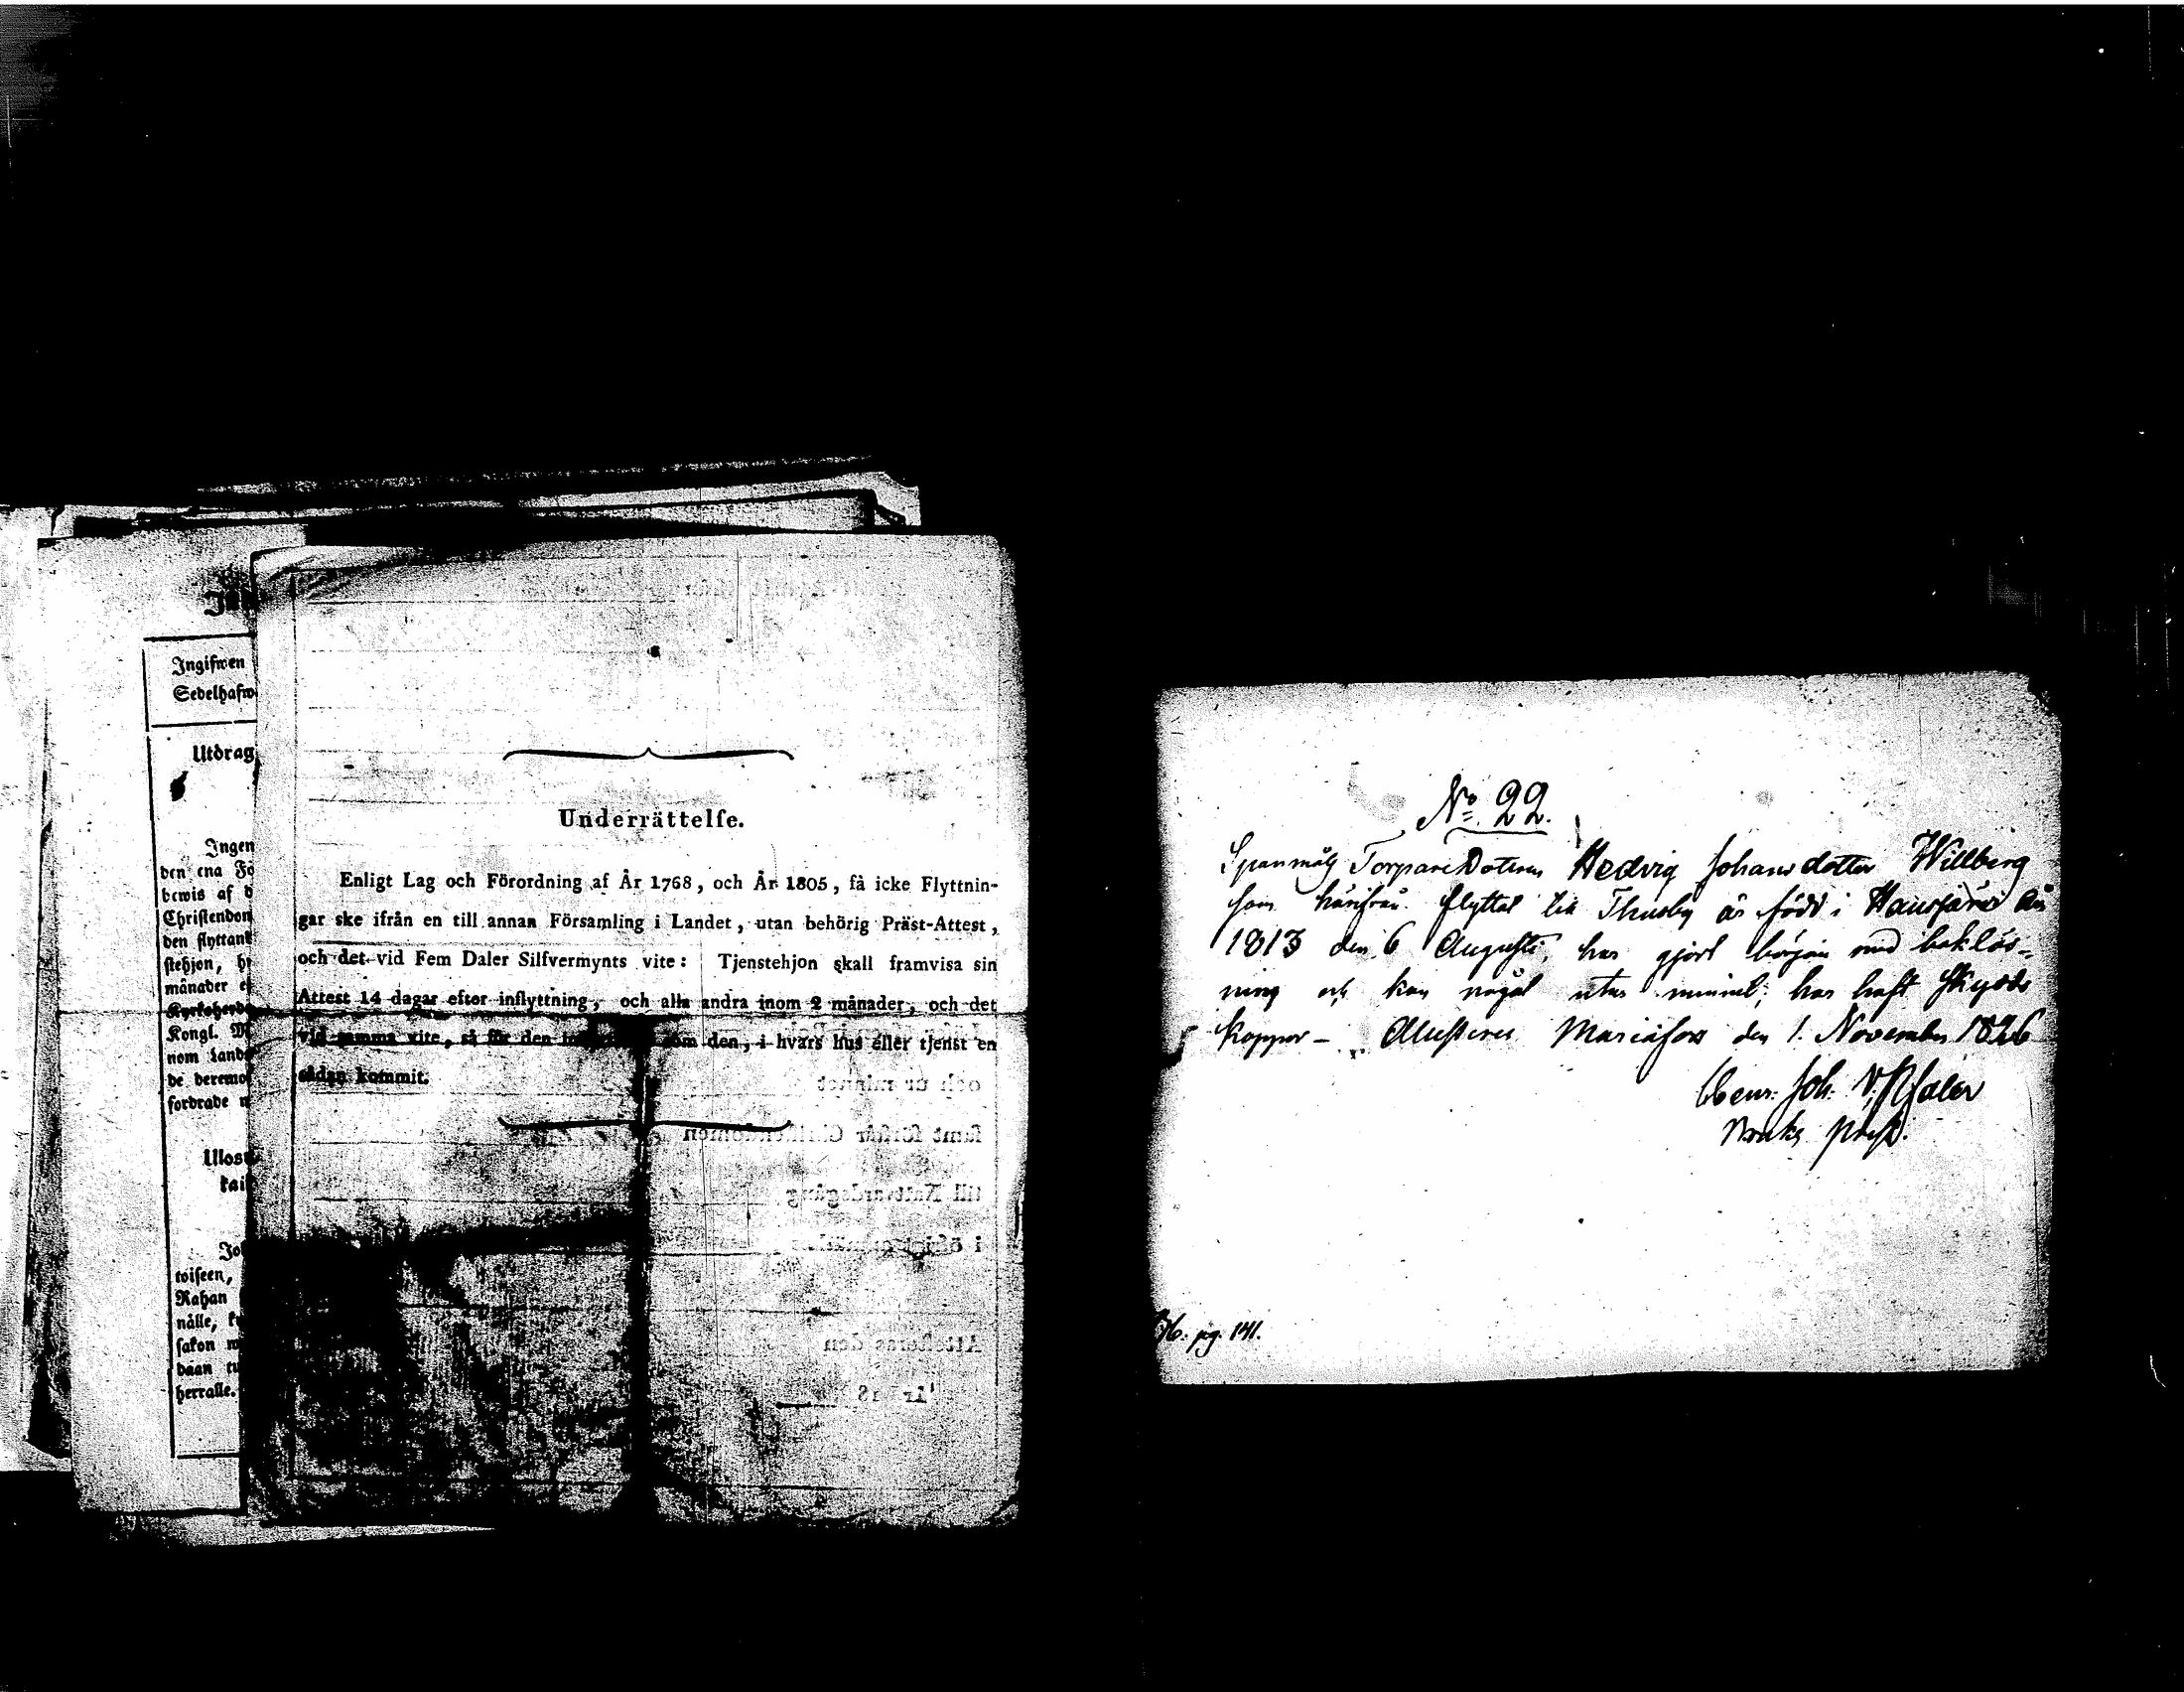 Ingifwen
Sedelhafw
Utdrag
Ingen
den ena Fö
bewis af d
Christendom
den flyttand
stehjon, h
månader e
Kyrkoherde
Kongl. M
nom Land
de deremo
fordrade n
Ulos
kai
Jo
wiseen,
Rahan
nälle, k
sakon m
daan tu
herralle.
Underrättelse.
Enligt Lag och Förordning af År 1768, och År 1805, få icke Flyttnin-
gar ske ifrån en till annan Församling i Landet, utan behörig Präst-Attest,
och det vid Fem Daler Silfvermynts vite: Tjenstehjon skall framvisa sin
Attest 14 dagar efter inflyttning, och alla andra inom 2 månader, och det
vid samma vite, så för den som den, i hvars hus eller tjenst en
sådan kommit.
och ur minnet
samt förstår Christendomen
till Nattvardsgång
i öfrigt
Attesteras den
År 18
No 22.
Torpare Dotren Hedvig Johansdotter Willberg
som härifrån flyttat till Thusby är född i Hausjärvi År
1813 den 6 Augusti, har gjort början med boklös-
ning och kan något utur minnet; har haft Skydds
koppor - Attesteras Mariæfors den 1. November 1826
Joh. V. Pfaler
Bruks präst.
pg. 141.